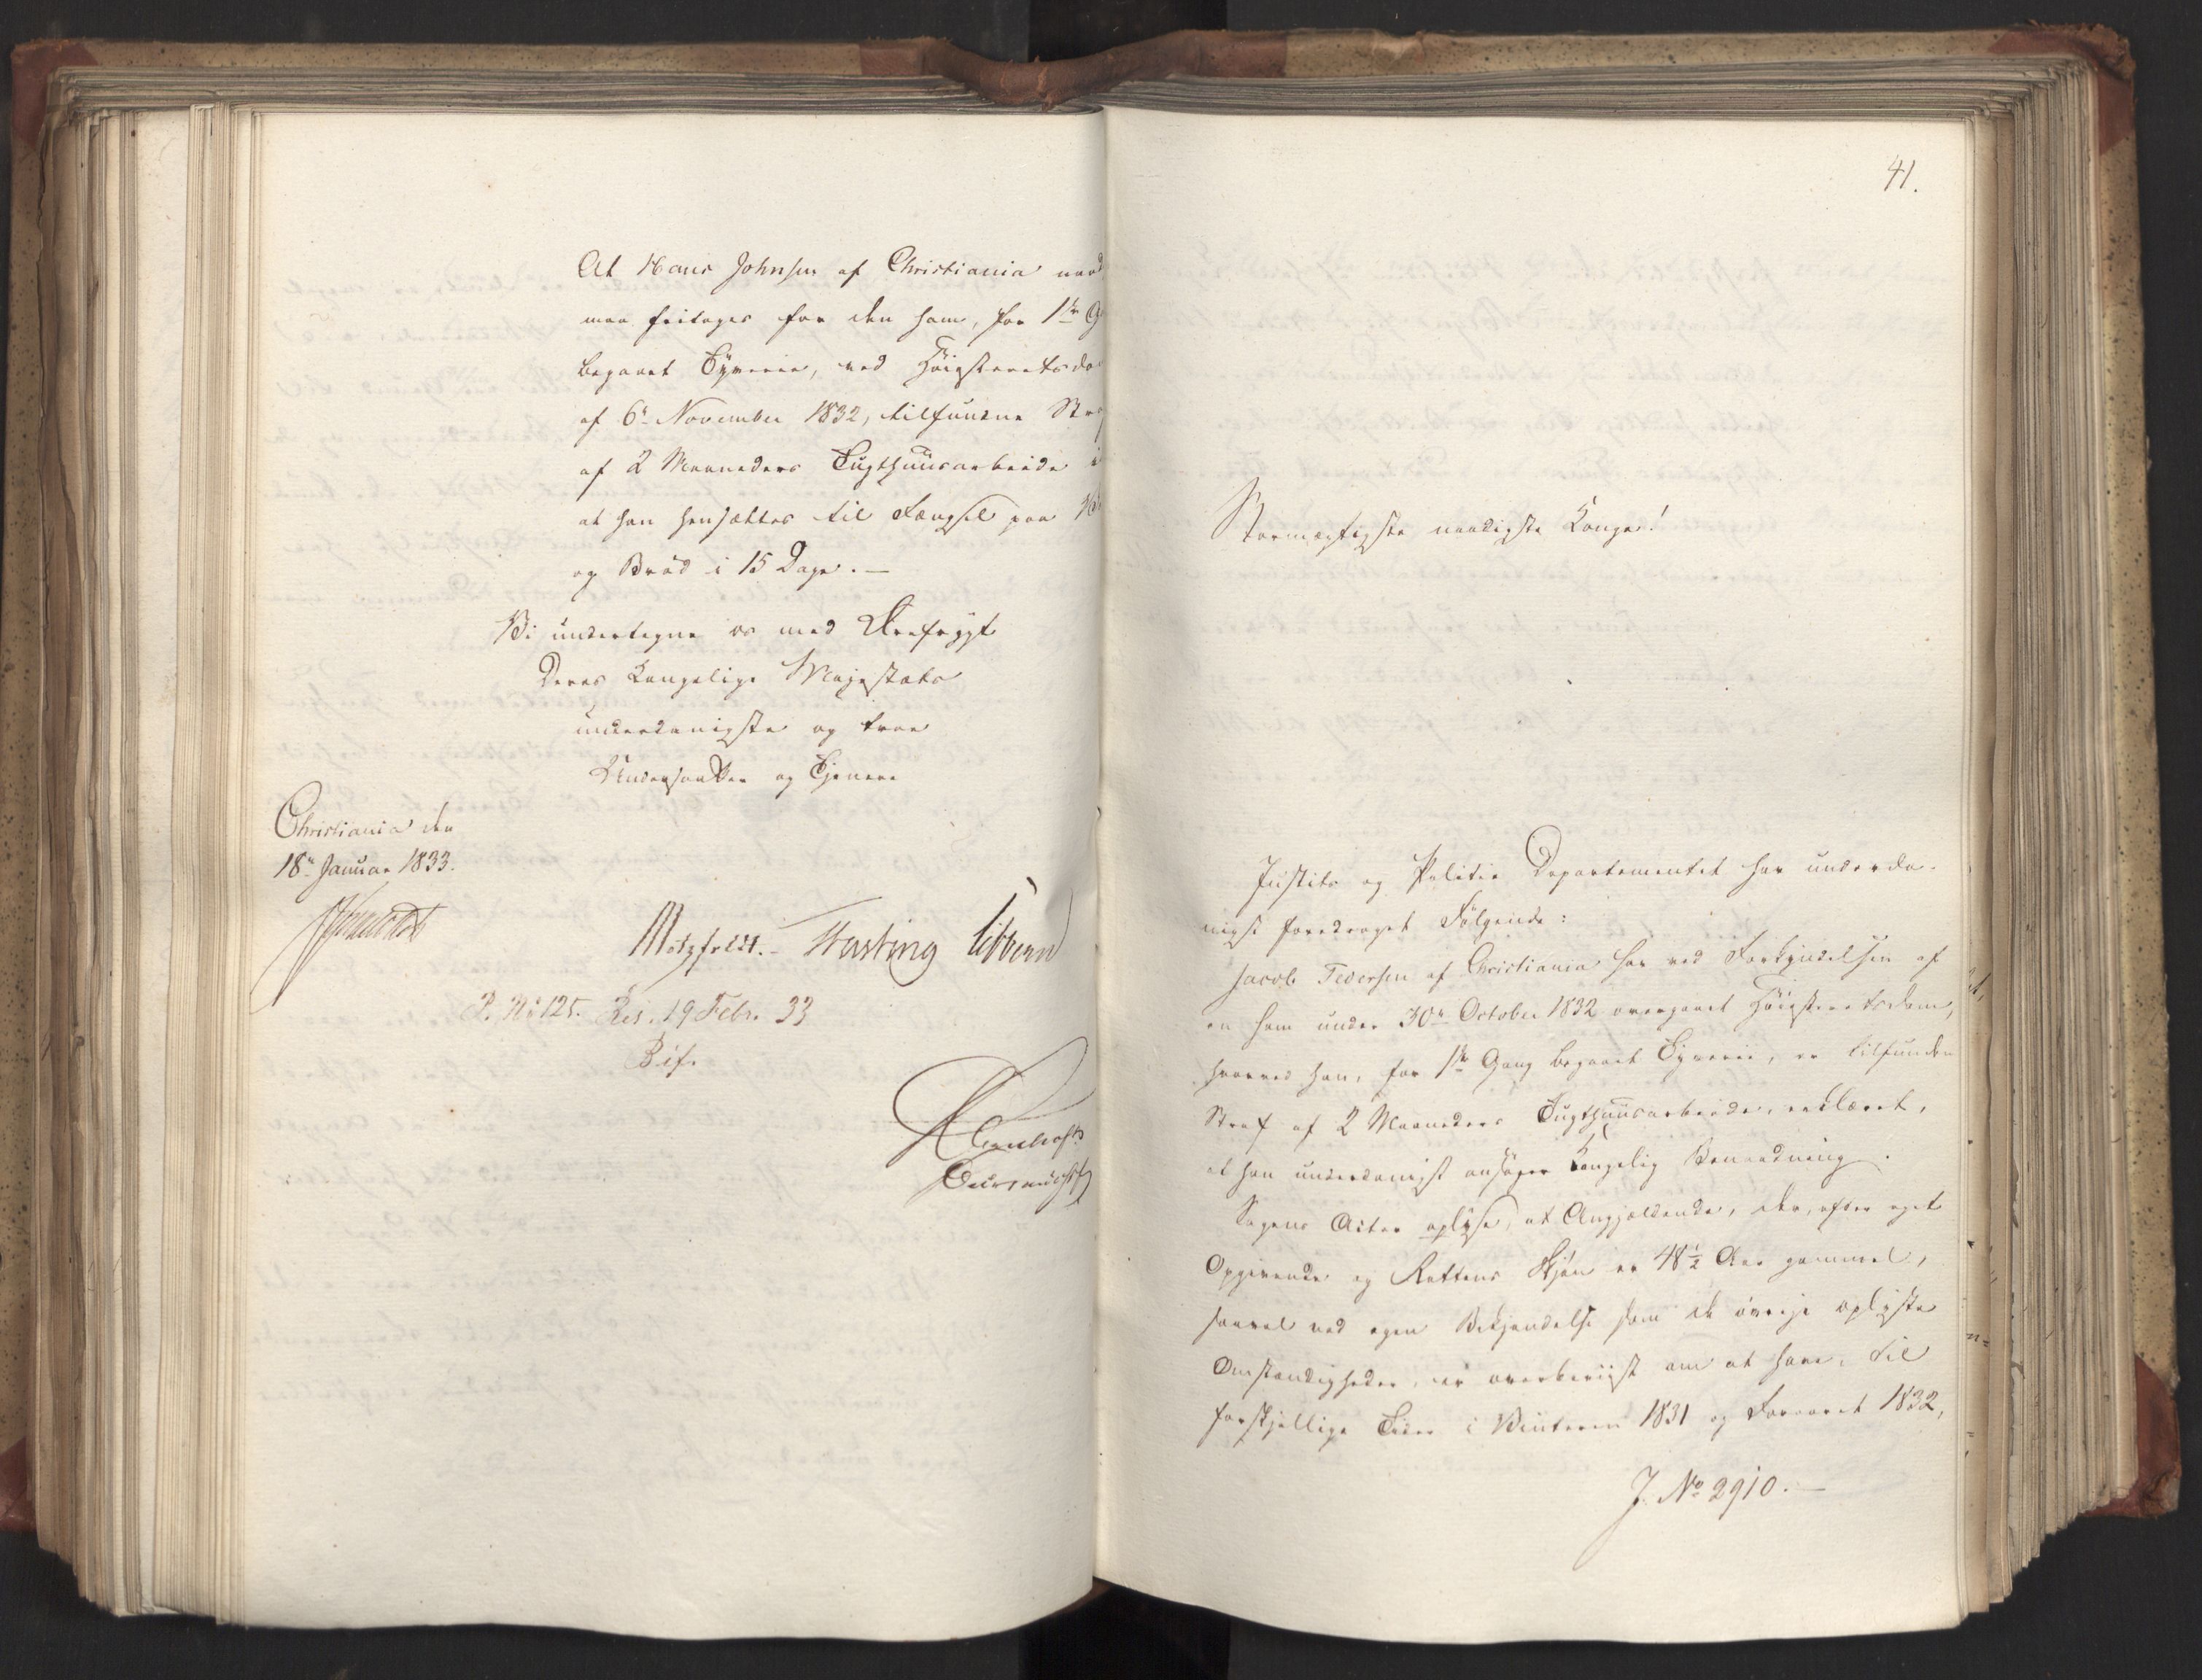 At Hans Johnsen af Christiania naad
maa fritages for den ham, for 1ste G
begaaet Tyverie, ved Höiesteretsdo
af 6te November 1832, tilfundne Stra
af 2 Maaneders Tugthuusarbeide
at han hensættes til Fængsel paa
og Bröd i 15 Dage. —
Vi undertegne os med Ærefrygt
Deres Kongelige Majestæts
underdanigste og troe
Undersaatter og Tjenere
Christiania den
18de Januar 1833.
Motzfeldt. Fasting Sibbern
P. No 125. Res. 19 Febr. 33
Bif.
41.
Stormægtigste naadigste Konge!
Justits og Politie Departementet har underda-
nigst foredraget Fölgende:
Jacob Pedersen af Christiania har ved Forkyndelsen af
en ham under 30te October 1832 overgaaet Höiesteretsdom,
hvorved han, for 1ste Gang begaaet Tyverie, er tilfunden
Straf af 2 Maaneders Tugthuusarbeide, erklæret,
at han underdanigst ansöger Kongelig Benaadning.
Sagens Acter oplyse, at Angjældende, der, efter eget
Opgivende og Rettens Skjön er 48½ Aar gammel,
saavel ved egen Bekjendelse som de övrige oplyste
Omstændigheder, er overbeviist om at have, til
forskjellige Tider i Vinteren 1831 og Foraaret 1832,
J. No 2910. —